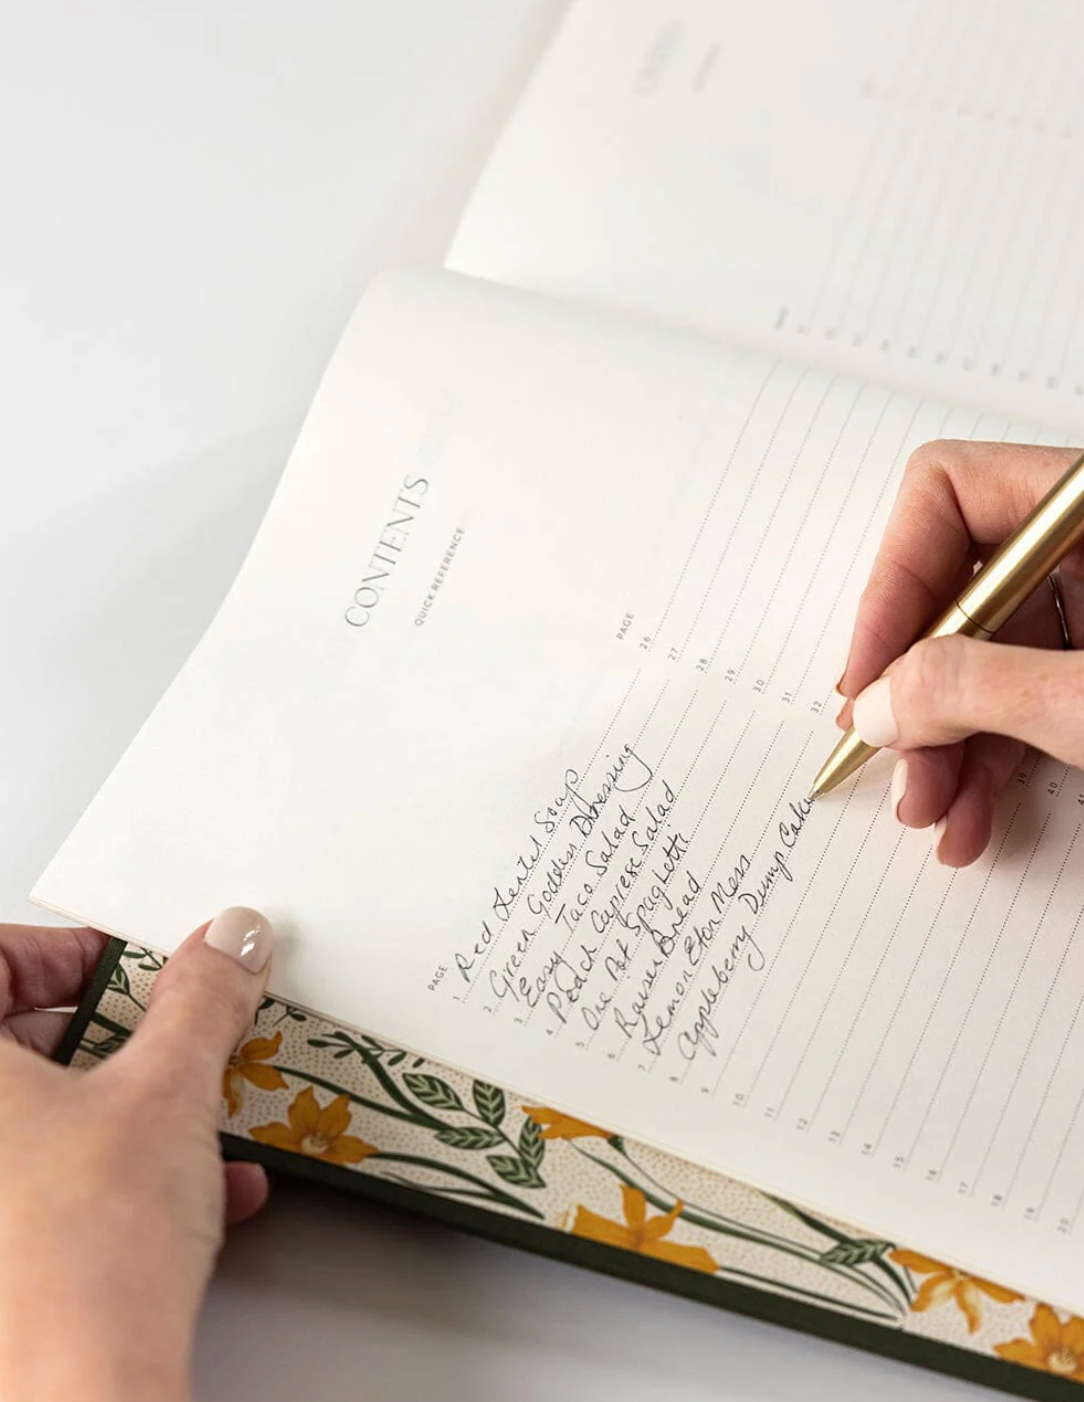 CONTENTS
QUICK REFERENCE
PAGE
1 Red Lentil Soup
2 Green Goddess Dressing
3 Easy Taco Salad
4 Peach Caprese Salad
5 One Pot Spaghetti
6 Raisin Bread
7 Lemon Eton Mess
8 Appleberry Dump Cake
9
10
11
12
13
14
15
16
17
18
19
20
PAGE
26
27
28
29
30
31
32
39
40